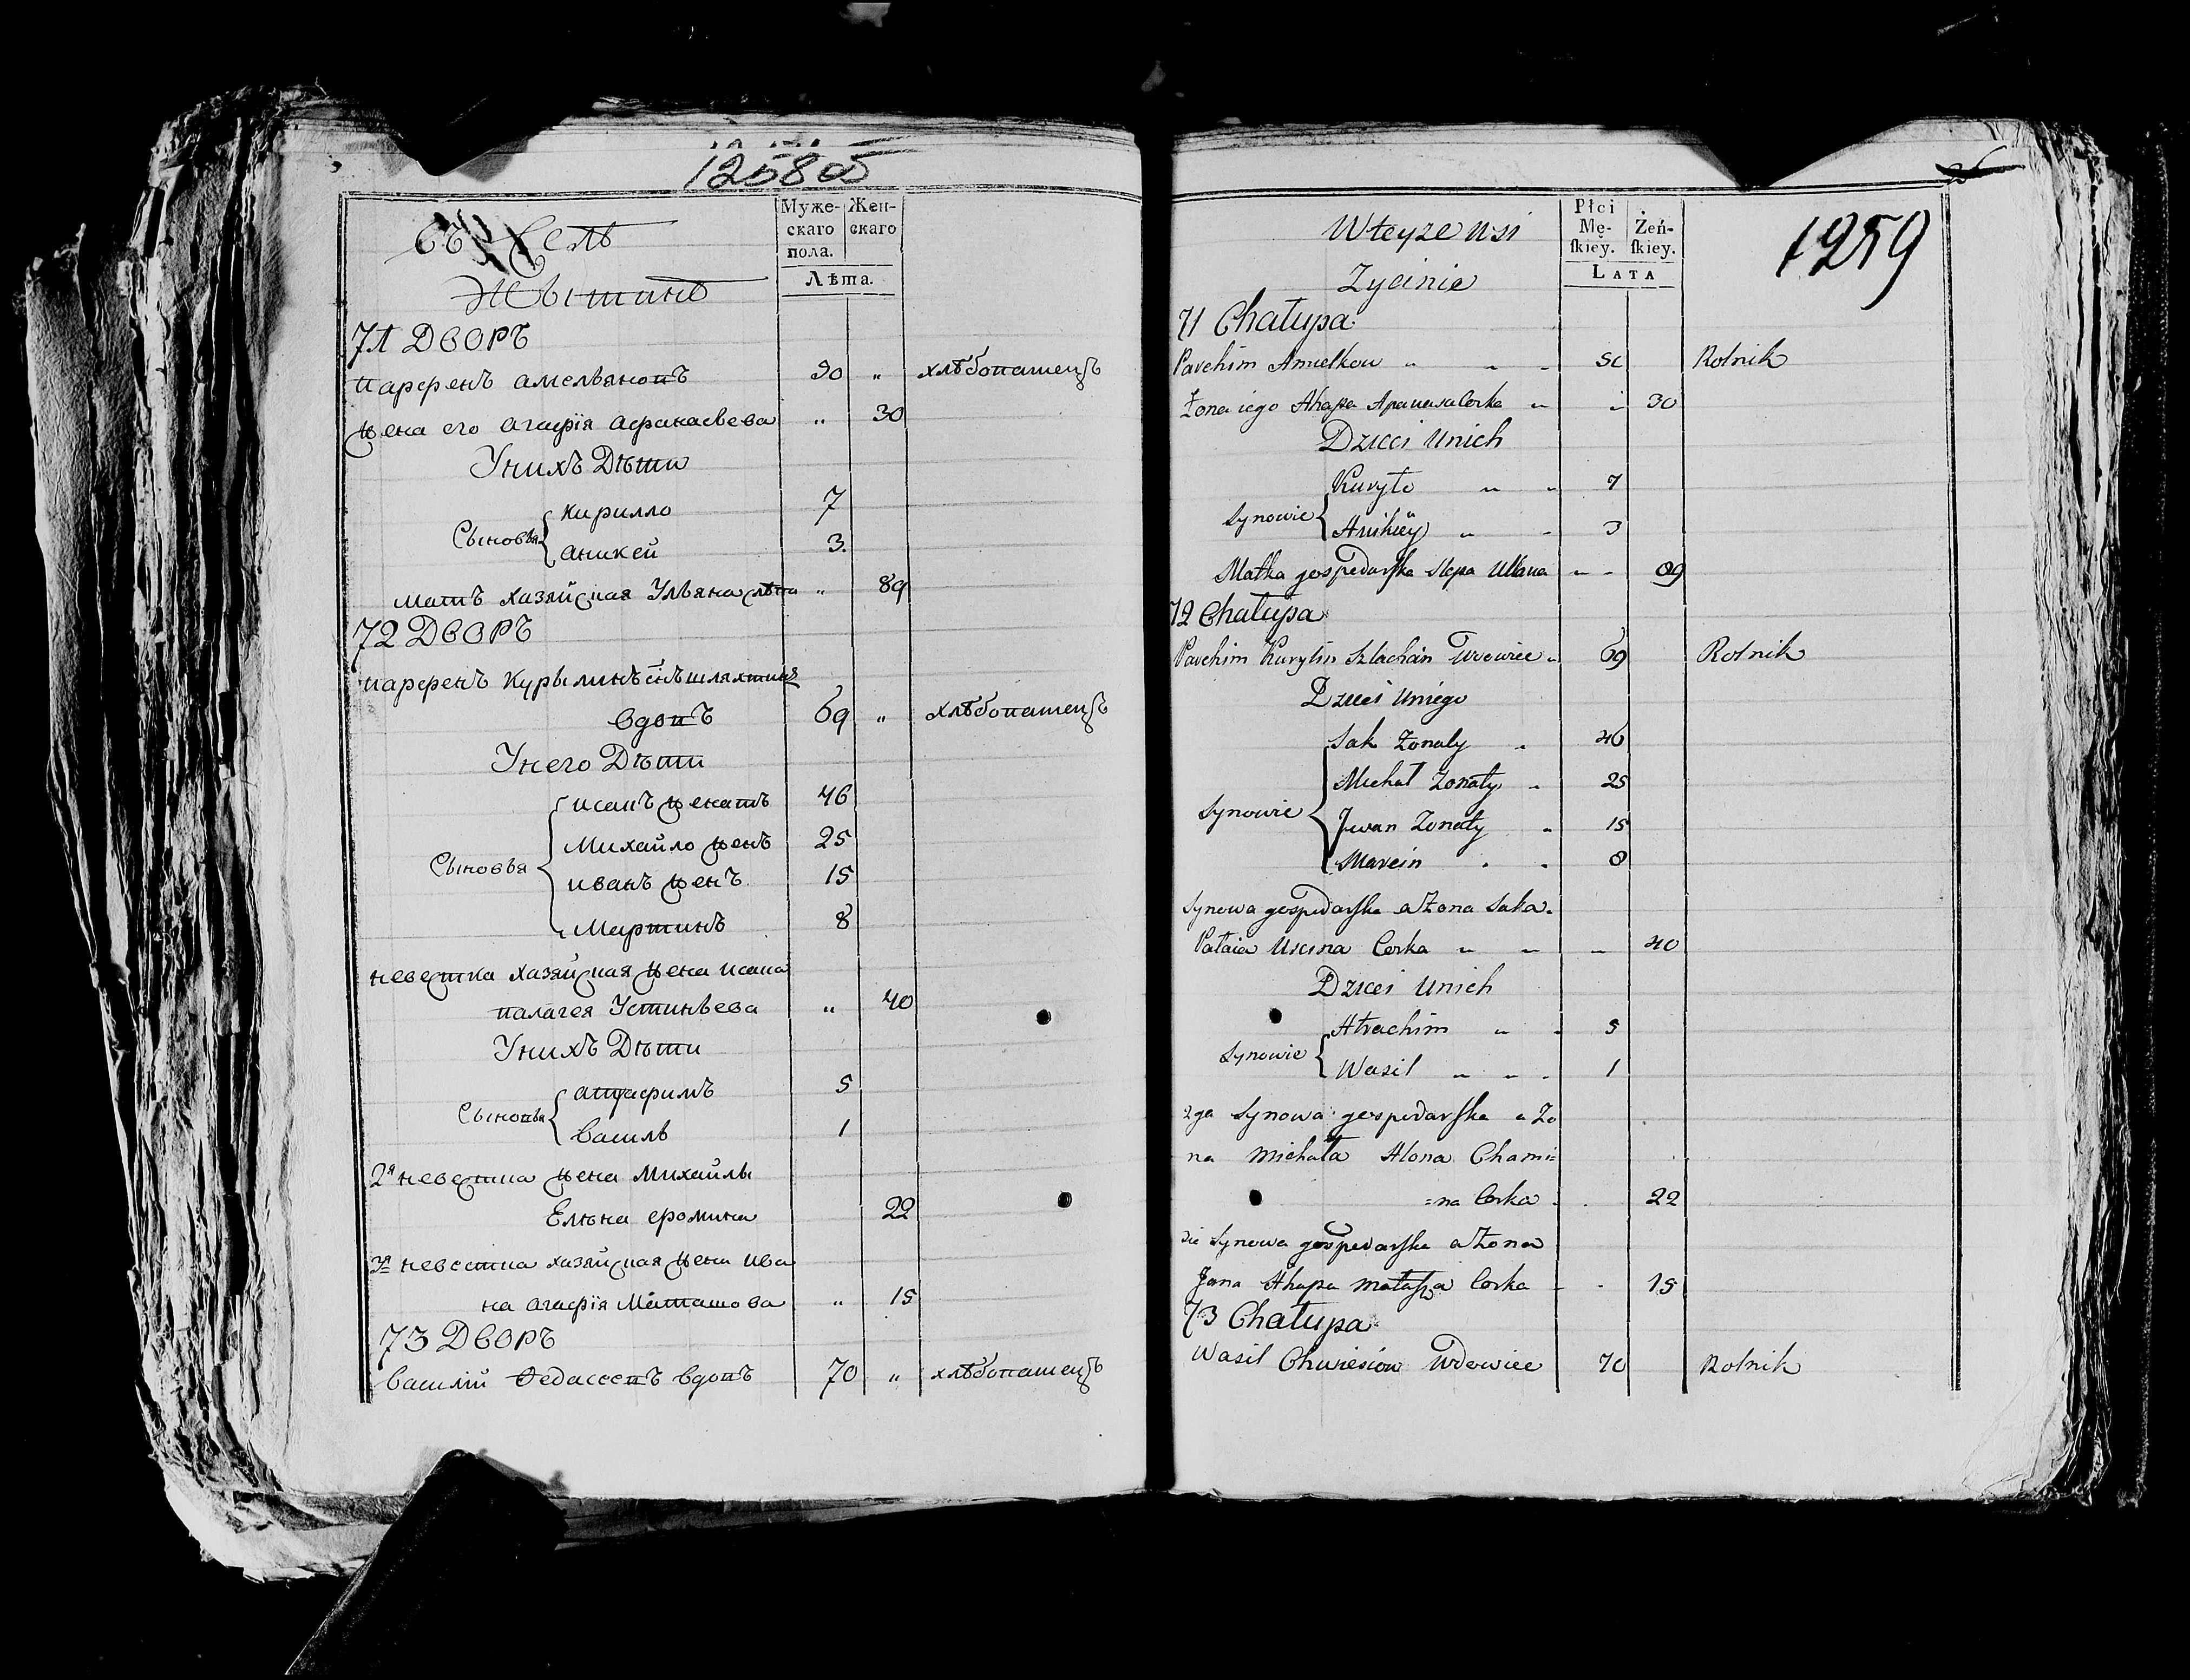 1258 об
Муже-
скаго
пола.
Жен-
скаго
Лѣта.
въ Селѣ
Жытинѣ
71 Дворъ
парфенъ амельяновъ 30 " хлѣбопашецъ
жена его агафія афанасьева " 30
У нихъ Дѣти
Сыновья
кирилло 7
аникей 3.
мать хазяйская Ульяна слѣпа " 89
72 Дворъ
парфенъ Курылинъ снъ шляхтинъ
вдовъ 69 " хлѣбопашецъ
У него Дѣти
Сыновья
исакъ женатъ 46
Михайло жен ъ 25
иванъ жен ъ 15
Мартинъ 8
невестка хазяйская жена исака
палагея Устиньева " 40
У нихъ Дѣти
Сыновья
атрафимъ 5
Василь 1
2я невестка жена Михайлы
Елѣна еромина 22
3я невестка хазяйская жена Ива
на агафія Маташова " 15
73 Дворъ
василій Федасеевъ вдовъ 70 " хлѣбопашецъ
1259
Płci
Mę-
ſkiey.
Żeń-
ſkiey.
LATA
W teyze wsi
Zycinie
71 Chałupa
Parchim Amielkow " " 30 Rolnik
Żona iego Ahapa Apanasa Corka " " 30
Dzieci u nich
Synowie
Kuryło " " 7
Anikiëy " 3
Matka gospodarska slepa Ullana " 89
72 Chałupa
Parchim Kurylin Szlachcin Wdowiec " 69 Rolnik
Dzieci u niego
Synowie
Sak Zonaty " 46
Michał Zonaty " 25
Jwan Zonaty " 15
Marcin " 8
Synowa gospodarska a Żona Saka.
Pałaia Uscina Corka " " 40
Dzieci u nich
Synowie
Atrachim " 5
Wasil " " 1
2ga Synowa gospodarska a Zo
na Michała Alona Chami=
=na Corka 22
3cia Synowa gospodarska a Zona
Jana Ahapa Matasza Corka 15
73 Chałupa
Wasil Chwiesiow Wdowiec 70 Rolnik